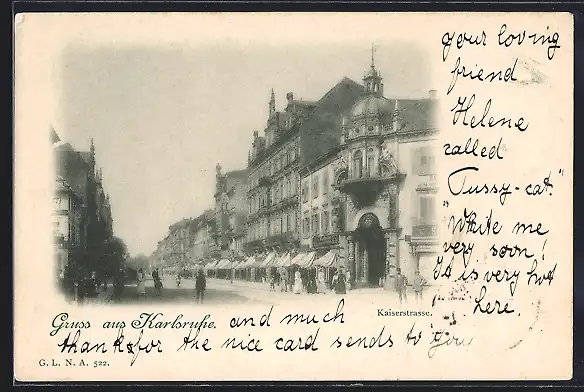 Gruss aus Karlsruhe. and much
thanks for the nice card sends to you
your loving
friend
Helene
called
"Pussy-cat."
White me
very soon!
It is very hot
here.
Kaiserstrasse.
G. L. N. A. 522.